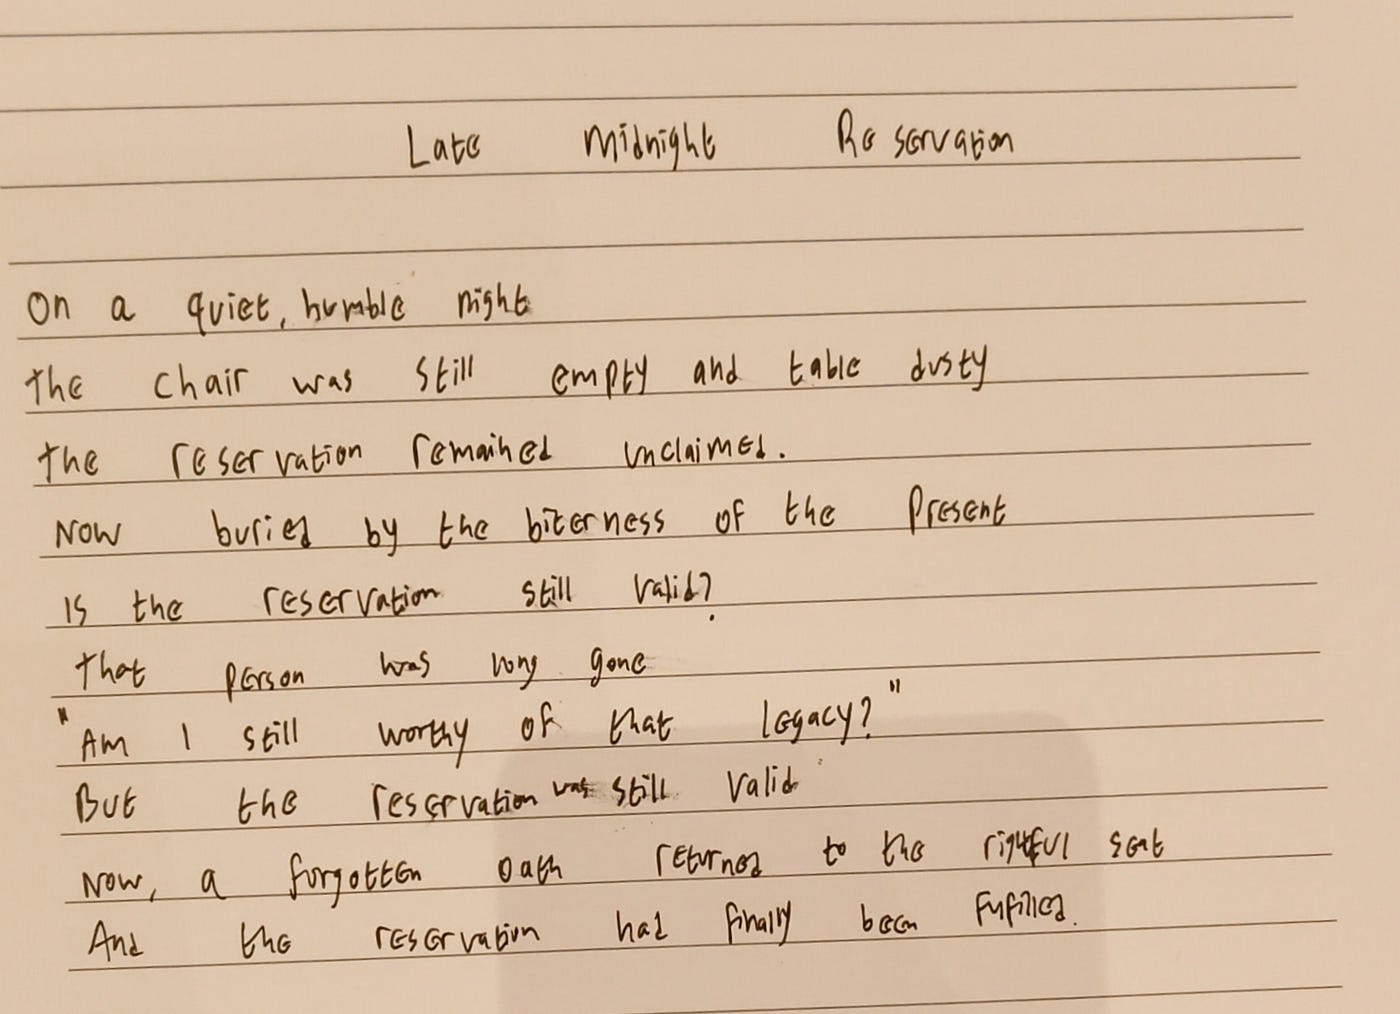 Late Midnight Reservation
On a quiet, humble night
the chair was still empty and table dusty
the reservation remained unclaimed.
Now buried by the biterness of the present
Is the reservation still valid?
that person was long gone
"Am I still worthy of that legacy?"
But the reservation was still valid
Now, a forgotten oath returned to the rightful seat
And the reservation had finally been fufilled.